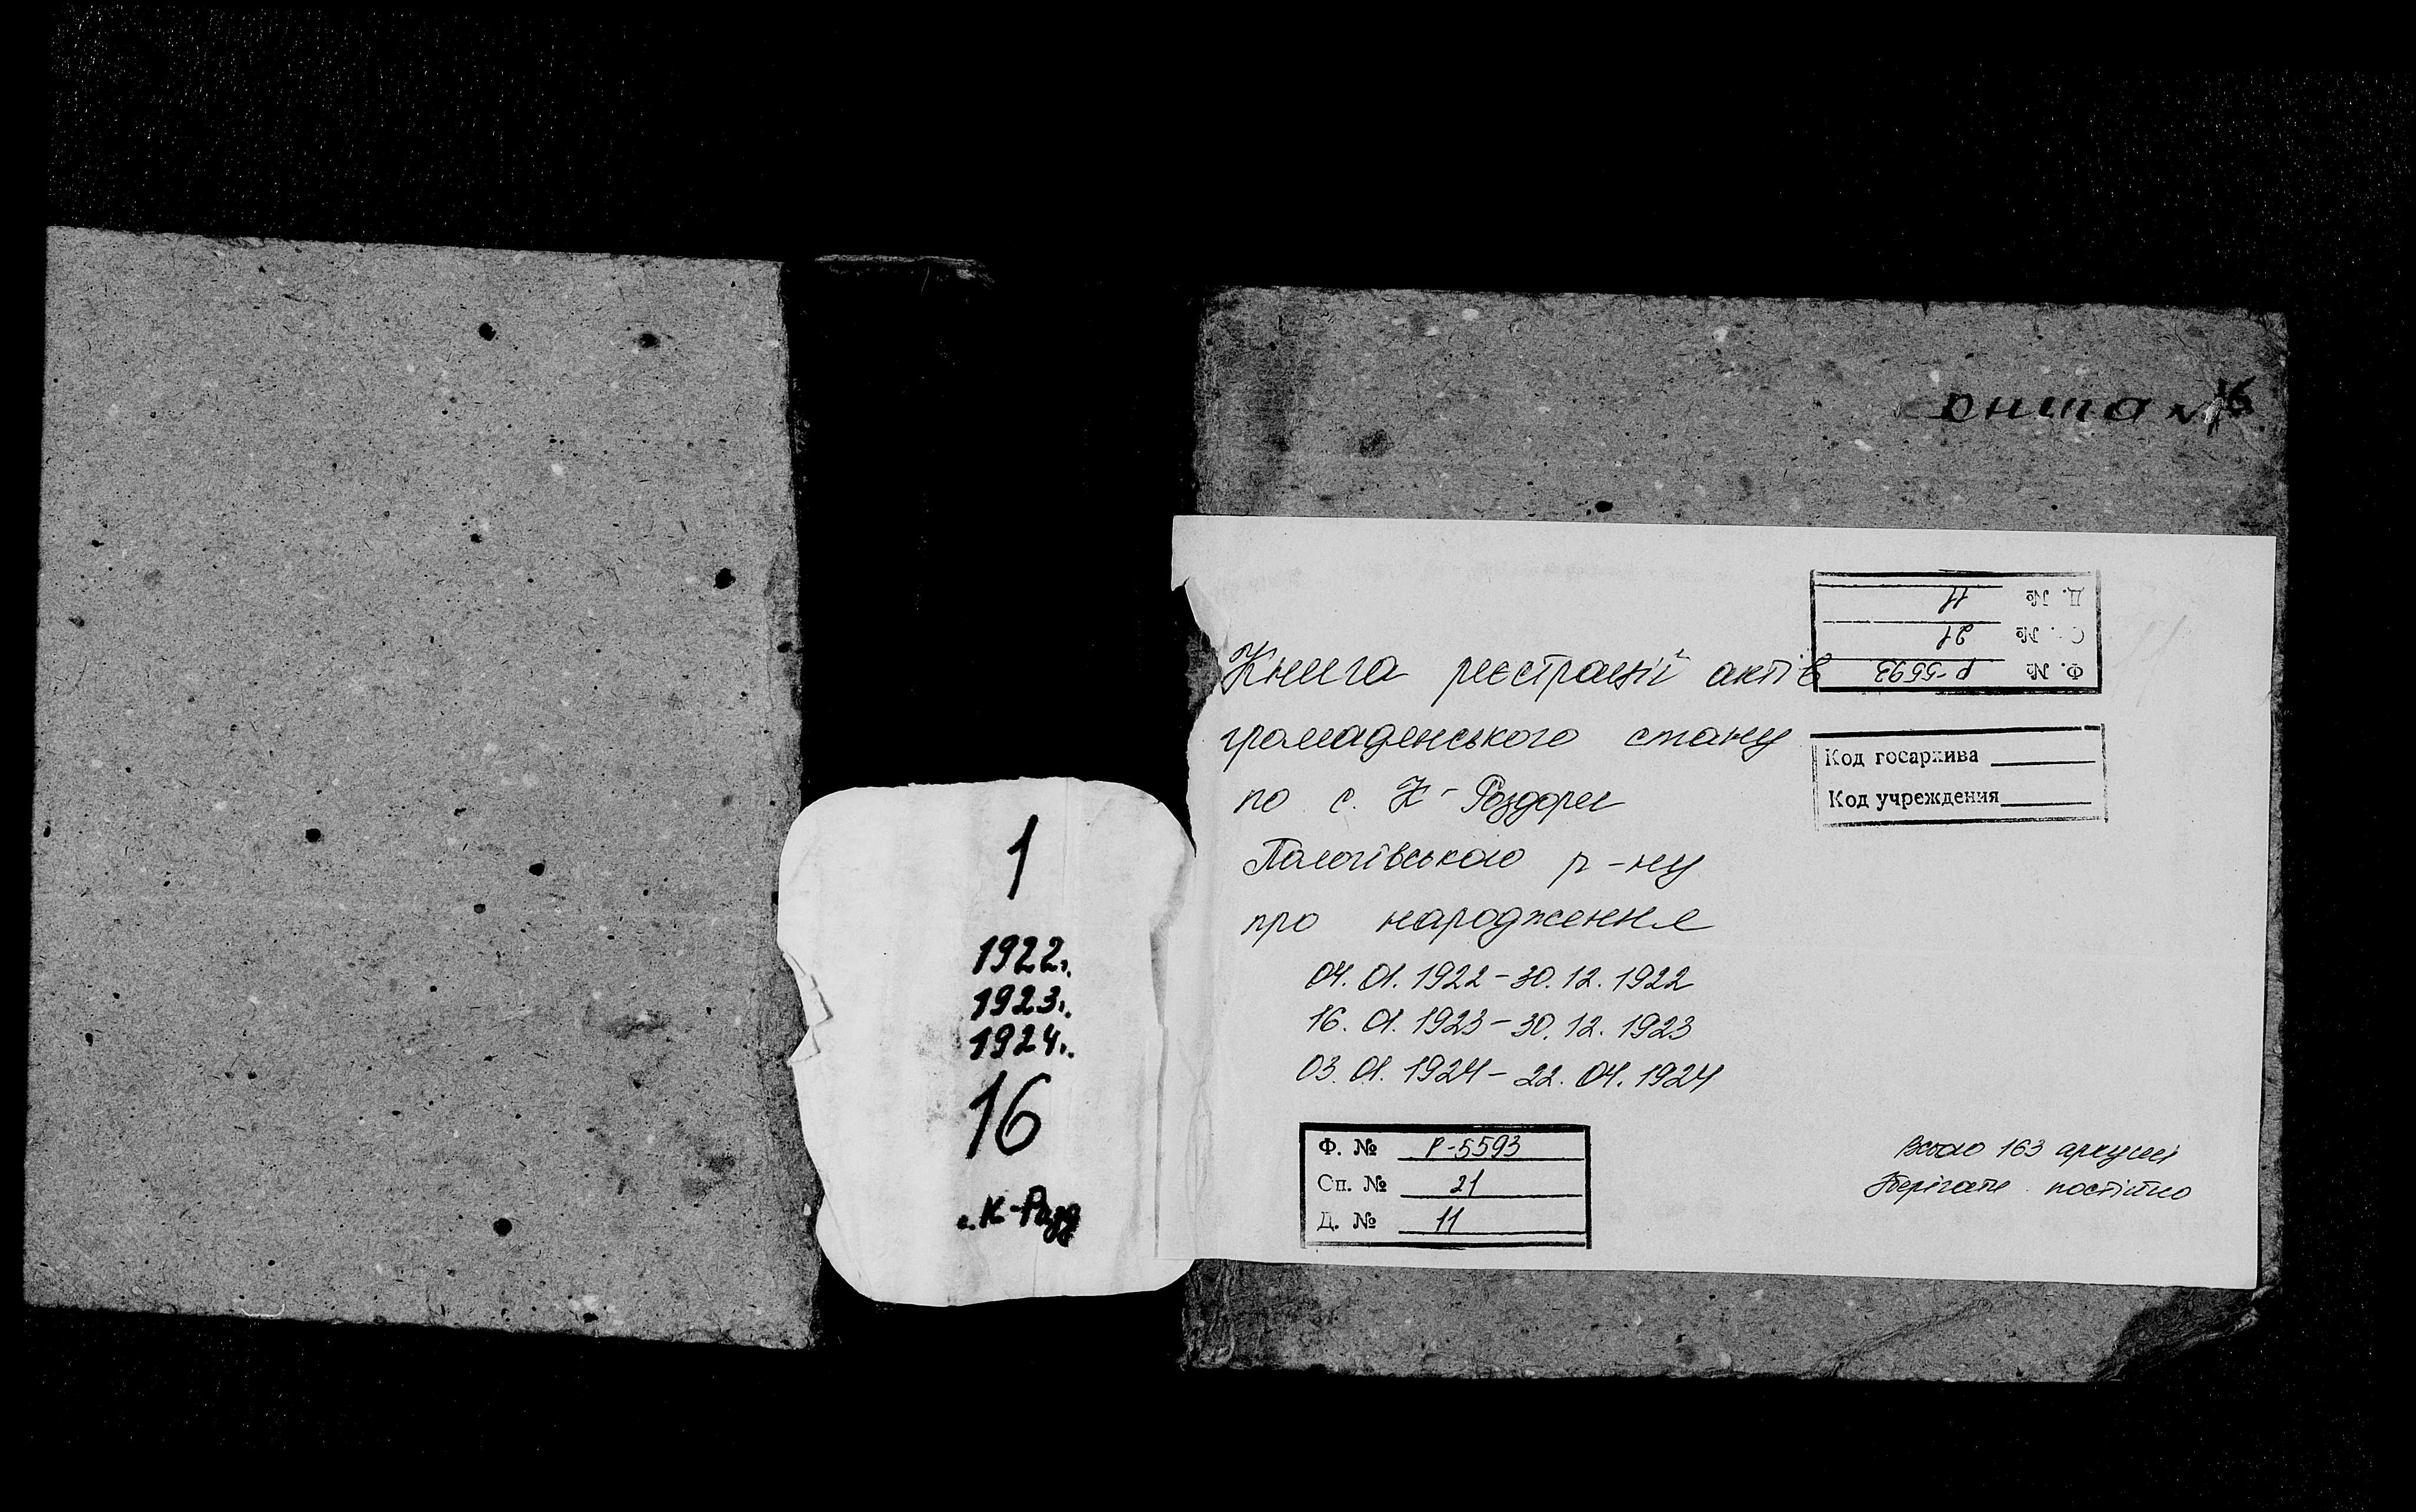 1
1922г.
1923г.
1924г.
16
с. К-Разд
книга № 16
Д. № 11
Сп. № 21
Ф. № Р-5593
Книга реєстрації актів
громадянського стану
Код госархива
Код учреждения
по с. К-Роздори
Пологівського р-ну
про народження
04. 01. 1922 - 30. 12. 1922
16. 01. 1923 - 30. 12. 1923
03. 01. 1924 - 22. 04. 1924
Ф. № Р-5593
Сп. № 21
Д. № 11
Всього 163 аркуші
Зберігати постійно